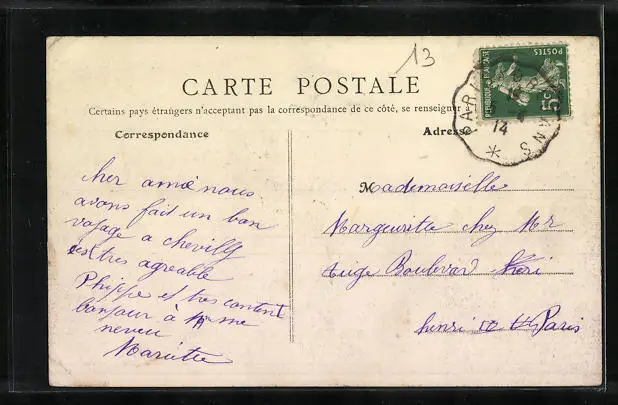 13
CARTE POSTALE
Certains pays étrangers n'acceptant pas la correspondance de ce côté, se renseigner
Correspondance
Adresse
POSTES
REPUBLIQUE FRANÇAISE
5c
PARI
14
cher amie nous
avons fait un bon
voyage a chevilly
tres agreable
Phippe et tres content
bonjour à me
neveu
Mariette
Mademoiselle
Margueritte chez Mr
Boulevar
henri Paris